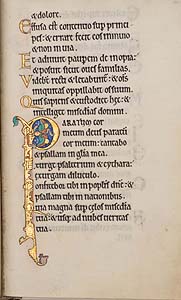 & dolore.
Effusa est contentio sup princi
pes: & errare fecit eos in inuio
& non in uia.
Et adiuuit paupem de inopia:
& posuit sicut oues familias.
Videbt recti & letabunt: & om
nis iniquitas oppilabit os suum.
Quis sapiens & custodiet hec: &
intelliget misedias domini.
Paratum cor
meum deus paratu
cor meum: cantabo
& psallam in glia mea.
Exurge psalterium & cythara:
exurgam diluculo.
Confitebor tibi in poplis dne: &
psallam tibi in nationibus.
Quia magna sup celos misedia
tua: & usq ad nubes ueritas
tua.